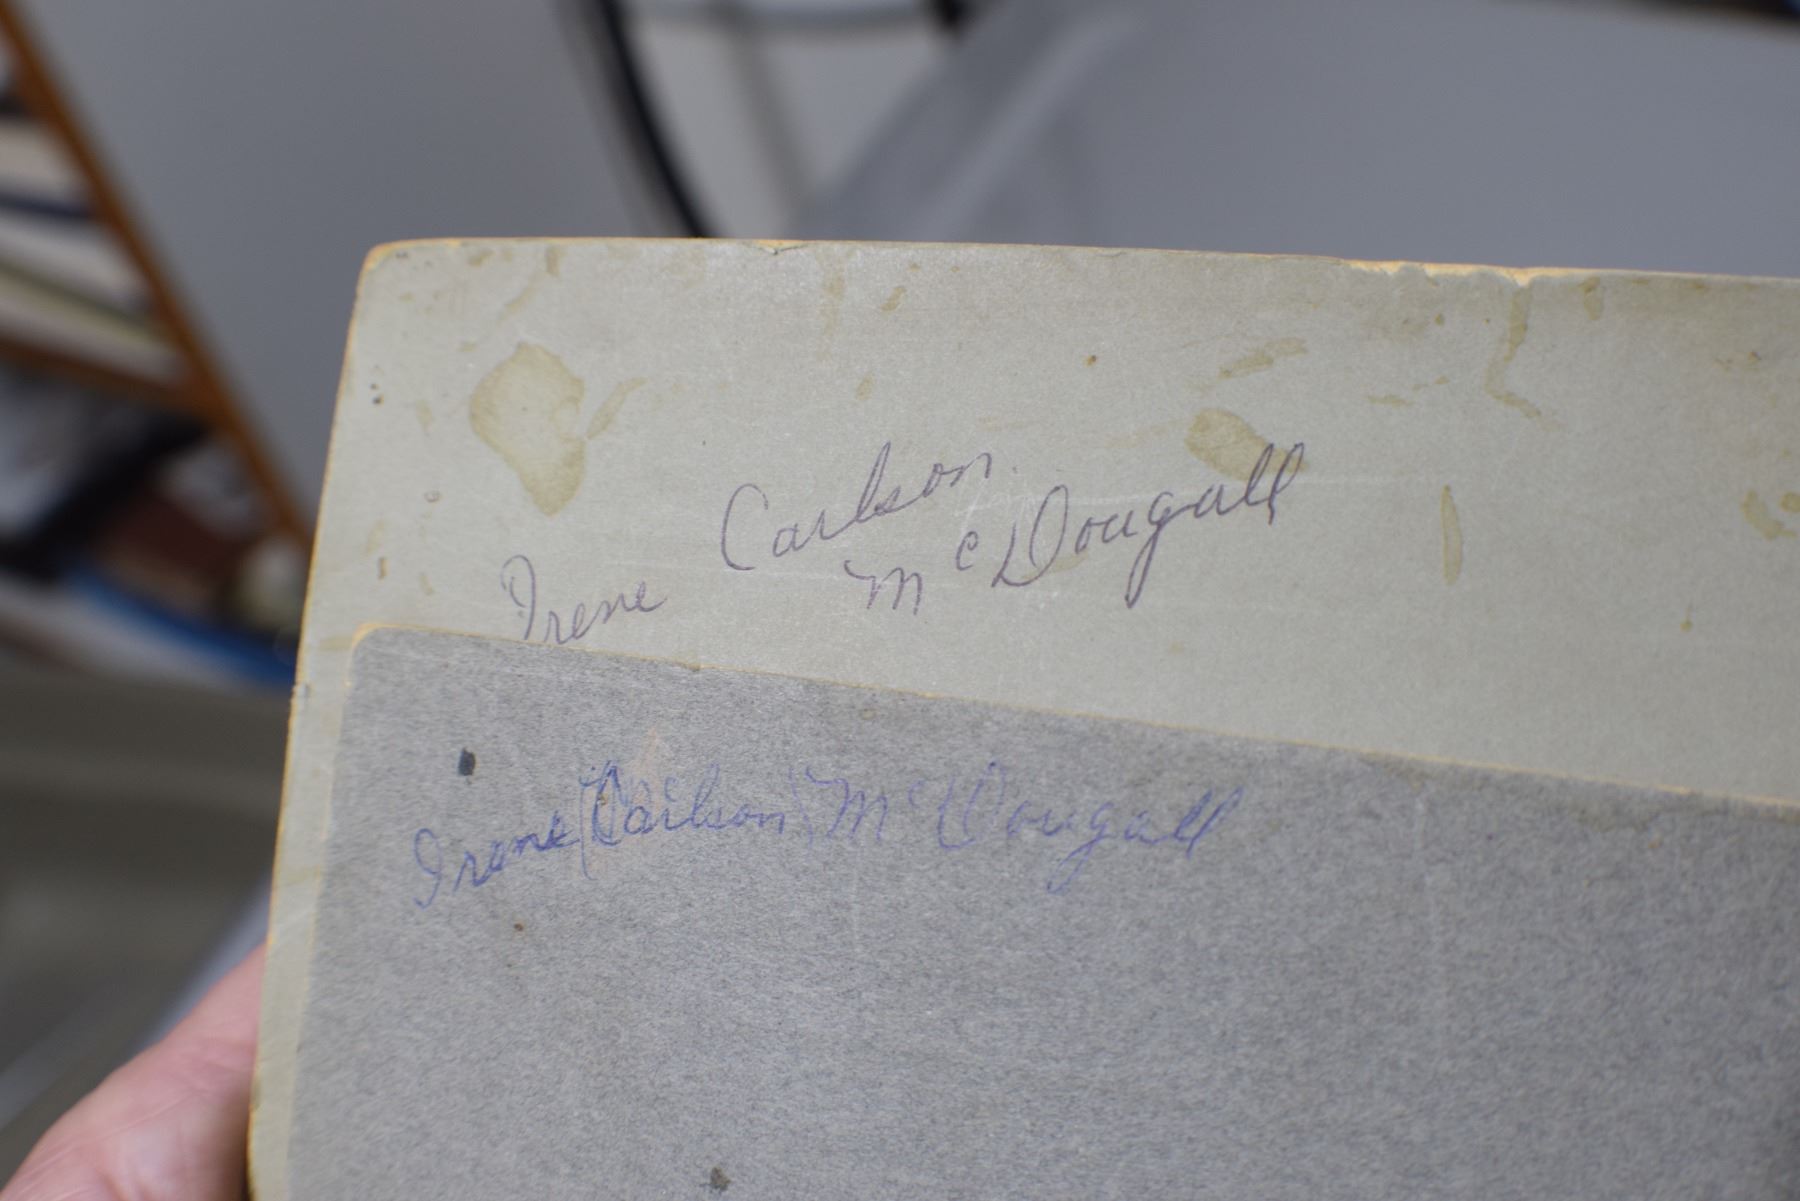 Irene Carlson
McDougall
Irene (Carlson) McDougall